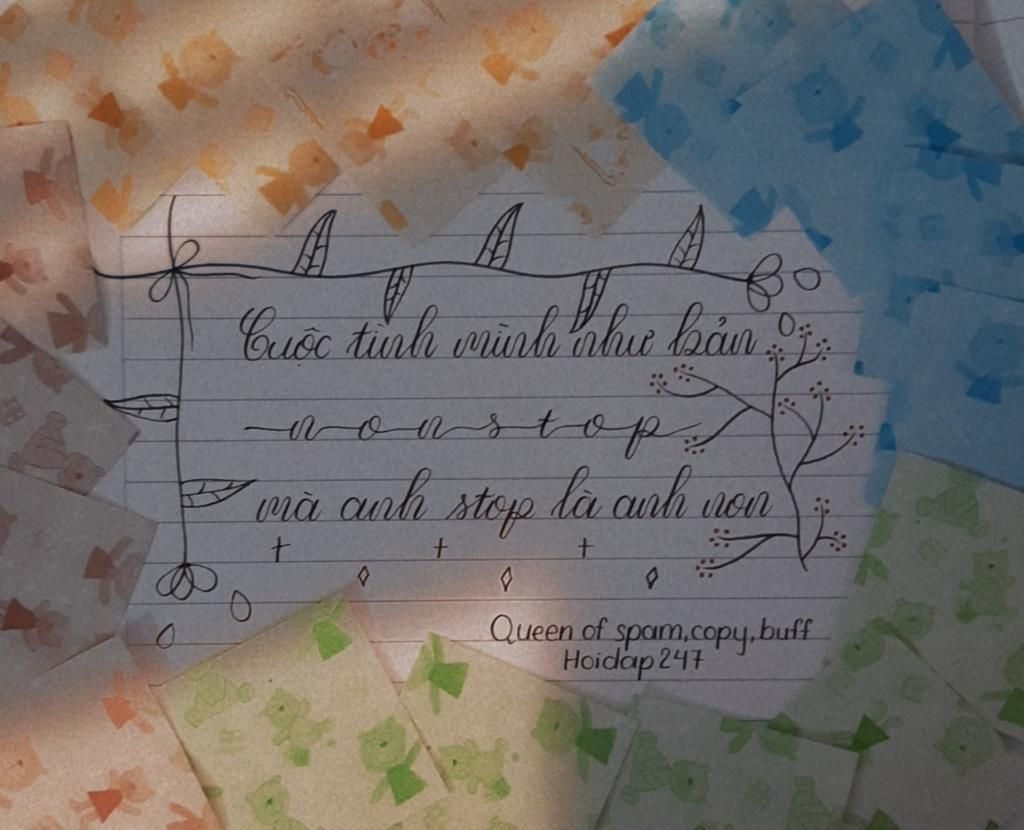 Cuộc tình mình như bản
nonstop
mà anh stop là anh non
Queen of spam,copy,buff
Hoidap247